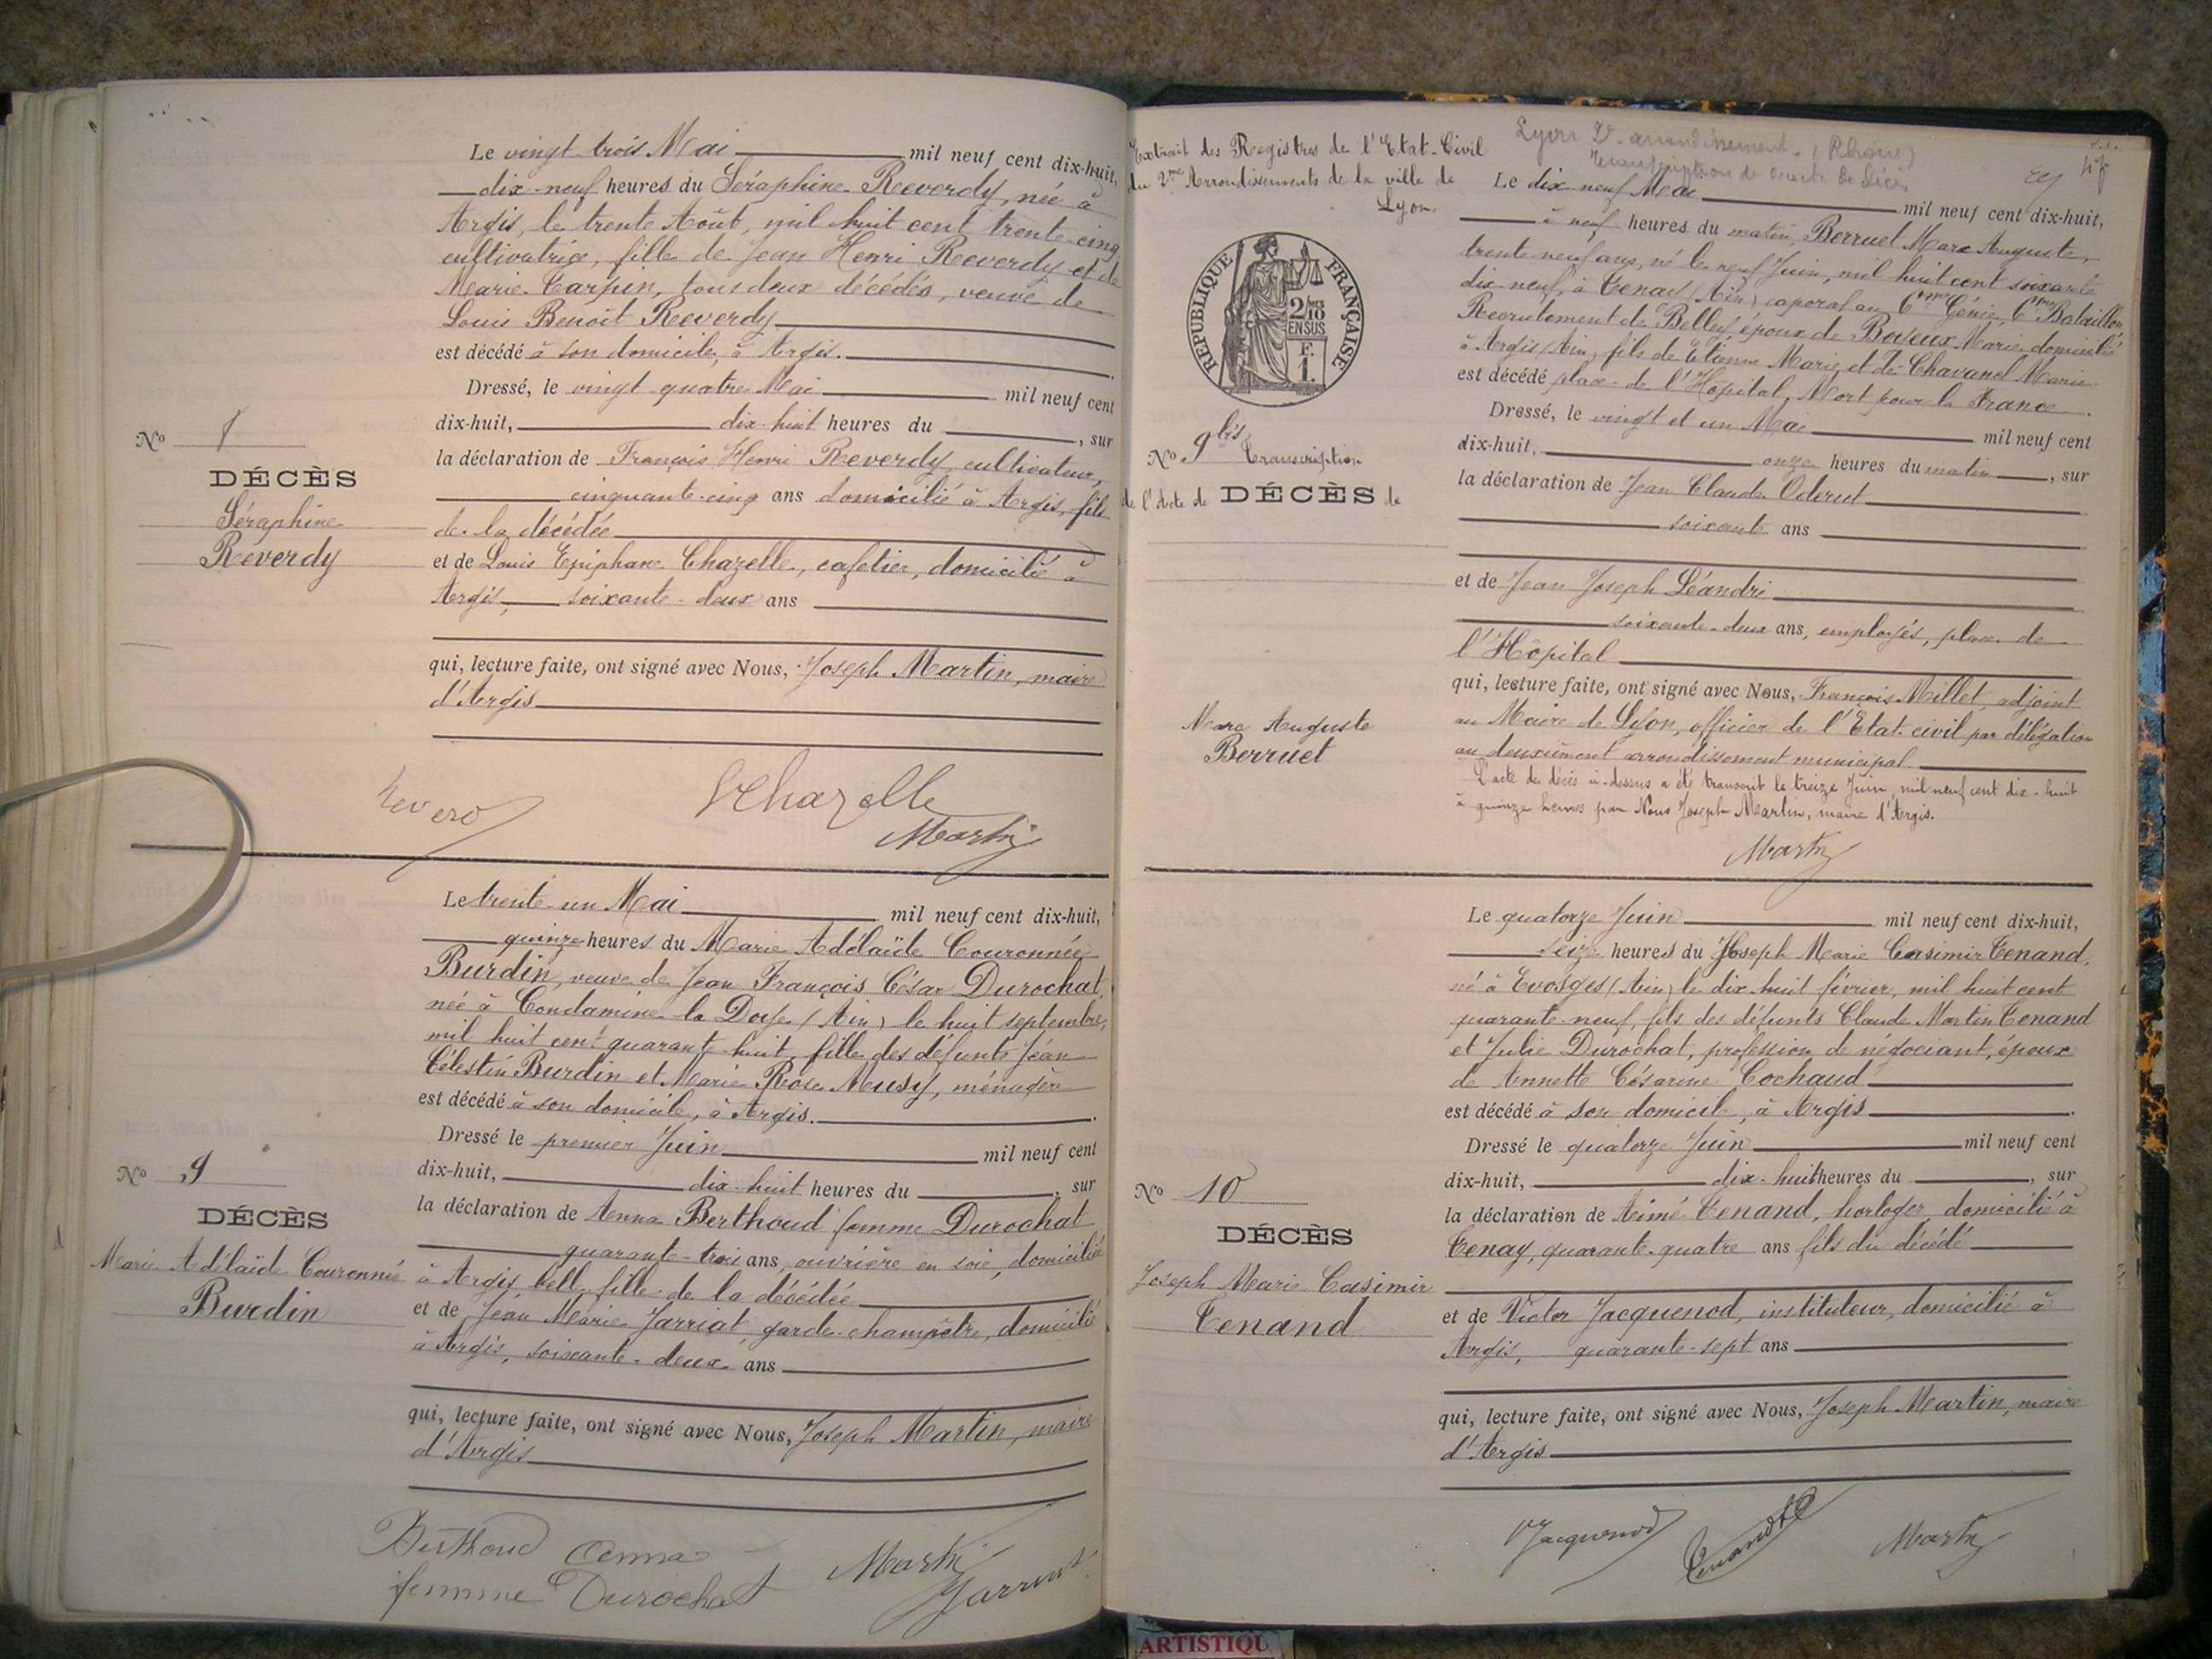 Le vingt trois Mai mil neuf cent dix-huit,
dix-neuf heures du Séraphine Reverdy, née à
Argis, le trente Août, mil huit cent trente-cinq
cultivatrice, fille de Jean Henri Reverdy et de
Marie Carpin, tous deux décédés, veuve de
Louis Benoît Reverdy
est décédé à son domicile, à Argis.
Dressé, le vingt quatre Mai mil neuf cent
dix-huit, dix-huit heures du , sur
la déclaration de François Henri Reverdy, cultivateur,
cinquante-cinq ans domicilié à Argis, fils
de la décédée
et de Louis Epiphane Chazelle, cafetier, domicilié à
Argis, soixante-deux ans
qui, lecture faite, ont signé avec Nous, Joseph Martin, maire
d'Argis
Nº 8
DÉCÈS
Séraphine
Reverdy
Chazelle
Martin
Le trente-un Mai mil neuf cent dix-huit,
quinze heures du Marie Adélaïde Couronnée
Burdin, veuve de Jean François César Durochat,
née à Condamine-la-Doye (Ain) le huit septembre,
mil huit cent quarante-huit, fille des défunts Jean
Célestin Burdin et Marie Rose Musy, ménagère
est décédé à son domicile, à Argis.
Dressé le premier Juin mil neuf cent
dix-huit, dix-huit heures du , sur
la déclaration de Anna Berthoud femme Durochat
quarante-trois ans, ouvrière en soie, domiciliée
à Argis, belle-fille de la décédée
et de Jean Marie Jarriat, garde-champêtre, domicilié
à Argis, soixante-deux ans
qui, lecture faite, ont signé avec Nous, Joseph Martin, maire
d'Argis
Nº 9
DÉCÈS
Marie Adélaïde Couronnée
Burdin
Berthoud Anna
femme Durochat
Martin
Jarriat
Extrait des Registres de l'Etat-Civil
du 2me Arrondissements de la ville de
Lyon.
Lyon 2e arrondissement. (Rhône)
Transcription de l'acte de décès
RÉPUBLIQUE FRANÇAISE
2/10
EN SUS
F.
1.
Nº 9 bis Transcription
de l'Acte de DÉCÈS de
Marc Auguste
Berruet
Le dix-neuf Mai mil neuf cent dix-huit,
à neuf heures du matin, Berruet Marc Auguste,
trente neuf ans, né le neuf Juin, mil huit cent soixante
dix-neuf, à Tenay (Ain) caporal au 6me Génie, 6me Bataillon,
Recrutement de Belley époux de Boseux Marie domicilié
à Argis (Ain) fils de Etienne Marie et de Chavanel Marie
est décédé place de l'Hôpital, Mort pour la France.
Dressé, le vingt et un Mai mil neuf cent
dix-huit, onze heures du matin, sur
la déclaration de Jean Claude Oderut
soixante ans
et de Jean Joseph Léandri
soixante-deux ans, employés, place de
l'Hôpital
qui, lecture faite, ont signé avec Nous, François Millet, adjoint
au Maire de Lyon, officier de l'Etat-civil par délégation
au deuxième arrondissement municipal.
L'acte de décès ci-dessus a été transcrit le treize Juin, mil neuf cent dix-huit
à quinze heures par Nous Joseph Martin, maire d'Argis.
Martin
Le quatorze Juin mil neuf cent dix-huit,
seize heures du Joseph Marie Casimir Tenand,
né à Evosges (Ain) le dix-huit février, mil huit cent
quarante-neuf, fils des défunts Claude Martin Tenand
et Julie Durochat, profession de négociant, époux
de Annette Césarine Cochaud
est décédé à son domicile, à Argis.
Dressé le quatorze Juin mil neuf cent
dix-huit, dix-huit heures du , sur
la déclaration de Aimé Tenand, horloger domicilié à
Tenay, quarante-quatre ans fils du décédé
et de Victor Jacquenod, instituteur, domicilié à
Argis, quarante-sept ans
qui, lecture faite, ont signé avec Nous, Joseph Martin, maire
d'Argis
Nº 10
DÉCÈS
Joseph Marie Casimir
Tenand
VJacquenod
Martin
ARTISTIQU